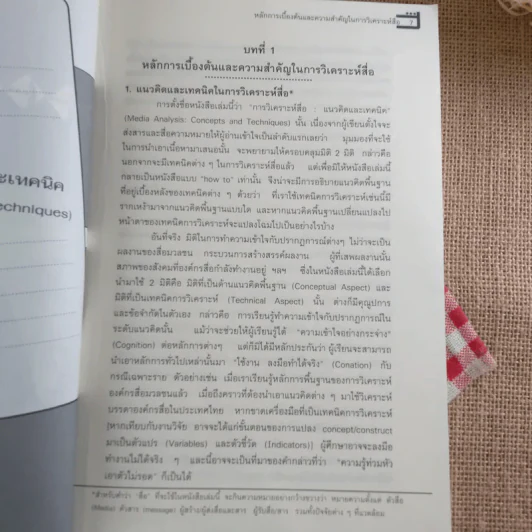 หลักการเบื้องต้นและความสำคัญในการวิเคราะห์สื่อ 7
บทที่ 1
หลักการเบื้องต้นและความสำคัญในการวิเคราะห์สื่อ
1. แนวคิดและเทคนิคในการวิเคราะห์สื่อ*
การตั้งชื่อหนังสือเล่มนี้ว่า "การวิเคราะห์สื่อ : แนวคิดและเทคนิค"
(Media Analysis: Concepts and Techniques) นั้น เนื่องจากผู้เขียนตั้งใจจะ
ส่งสารและสื่อความหมายให้ผู้อ่านเข้าใจเป็นลำดับแรกเลยว่า มุมมองที่จะใช้
ในการนำเอาเนื้อหามาเสนอนั้น จะพยายามให้ครอบคลุมมิติ 2 มิติ กล่าวคือ
นอกจากจะมีเทคนิคต่าง ๆ ในการวิเคราะห์สื่อแล้ว แต่เพื่อมิให้หนังสือเล่มนี้
กลายเป็นหนังสือแบบ "how to" เท่านั้น จึงน่าจะมีการอธิบายแนวคิดพื้นฐาน
ที่อยู่เบื้องหลังของเทคนิคต่าง ๆ ด้วยว่า ที่เราใช้เทคนิคการวิเคราะห์เช่นนี้มี
รากเหง้ามาจากแนวคิดพื้นฐานแบบใด และหากแนวคิดพื้นฐานเปลี่ยนแปลงไป
หน้าตาของเทคนิคการวิเคราะห์จะแปลงโฉมไปเป็นอย่างไรบ้าง
อันที่จริง มิติในการทำความเข้าใจกับปรากฏการณ์ต่างๆ ไม่ว่าจะเป็น
ผลงานของสื่อมวลชน กระบวนการสร้างสรรค์ผลงาน ผู้ที่เสพผลงานนั้น
สภาพของสังคมที่องค์กรสื่อกำลังทำงานอยู่ ฯลฯ ซึ่งในหนังสือเล่มนี้ได้เลือก
นำมาใช้ 2 มิติคือ มิติที่เป็นด้านแนวคิดพื้นฐาน (Conceptual Aspect) และ
มิติที่เป็นเทคนิคการวิเคราะห์ (Technical Aspect) นั้น ต่างก็มีคุณูปการ
และข้อจำกัดในตัวเอง กล่าวคือ การเรียนรู้ทำความเข้าใจกับปรากฏการณ์ใน
ระดับแนวคิดนั้น แม้ว่าจะช่วยให้ผู้เรียนรู้ได้ "ความเข้าใจอย่างกระจ่าง"
(Cognition) ต่อหลักการต่างๆ แต่ก็มิได้มีหลักประกันว่า ผู้เรียนจะสามารถ
นำเอาหลักการทั่วไปเหล่านั้นมา "ใช้งาน ลงมือทำได้จริง" (Conation) กับ
กรณีเฉพาะราย ตัวอย่างเช่น เมื่อเราเรียนรู้หลักการพื้นฐานของการวิเคราะห์
องค์กรสื่อมวลชนแล้ว เมื่อถึงคราวที่ต้องนำเอาแนวคิดต่าง ๆ มาใช้วิเคราะห์
บรรดาองค์กรสื่อในประเทศไทย หากขาดเครื่องมือที่เป็นเทคนิคการวิเคราะห์
[หากเทียบกับงานวิจัย อาจจะได้แก่ขั้นตอนของการแปลง concept/construct
มาเป็นตัวแปร (Variables) และตัวชี้วัด (Indicators)] ผู้ศึกษาอาจจะลงมือ
ทำงานไม่ได้จริง ๆ และนี้อาจจะเป็นที่มาของคำกล่าวที่ว่า "ความรู้ท่วมหัว
เอาตัวไม่รอด" ก็เป็นได้
*สำหรับคำว่า "สื่อ" ที่จะใช้ในหนังสือเล่มนี้ จะกินความหมายอย่างกว้างขวางว่า หมายความตั้งแต่ ตัวสื่อ
(Media) ตัวสาร (message) ผู้สร้าง/ผู้ส่งสื่อและสาร ผู้รับสื่อ/สาร รวมทั้งปัจจัยต่าง ๆ ที่แวดล้อม
ะเทคนิค
echniques)